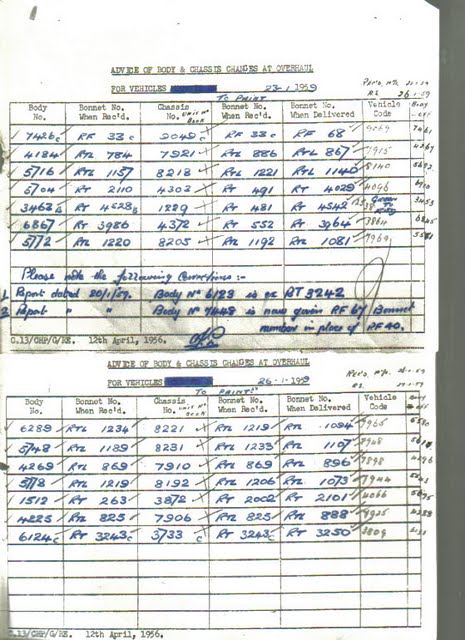 ADVICE OF BODY & CHASSIS CHANGES AT OVERHAUL
FOR VEHICLES 23-1-1959
TO PAINT
26-1-59
Body No. Bonnet No. When Rec'd. Chassis No. Unit No Book Bonnet No. When Rec'd. Bonnet No. When Delivered Vehicle Code Body off
7426c RF 33c 2049c RF 33c RF 68
4184 RTL 784 7921 RTL 886 RTL 867 7915
5716 RTL 1157 8218 RTL 1221 RTL 1140 8140
5704 RT 2110 4303 RT 491 RT 4029 4096
3463 RT 4528 1229 RT 481 RT 4542 3455
6867 RT 3986 4372 RT 552 RT 3964 3864
5772 RTL 1220 8205 RTL 1192 RTL 1081 7969
Please note the following corrections :-
1 Report dated 20/1/59. Body No 6123 is ex RT 3242
2 Report " " Body No 7448 is now given RF 67 Bonnet
number in place of RF 40.
C.13/CHP/G/RE. 12th April, 1956.
ADVICE OF BODY & CHASSIS CHANGES AT OVERHAUL
FOR VEHICLES 26-1-1959
TO PAINT
Body No. Bonnet No. When Rec'd. Chassis No. Unit No Book Bonnet No. When Rec'd. Bonnet No. When Delivered Vehicle Code
6289 RTL 1234 8221 RTL 1219 RTL 1094 7965
5748 RTL 1189 8231 RTL 1233 RTL 1107 8948
4269 RTL 869 7910 RTL 869 RTL 896 7898
5778 RTL 1219 8192 RTL 1206 RTL 1073 7944
1512 RT 263 3872 RT 2002 RT 2101 4066
4225 RTL 825 7906 RTL 825 RTL 888 7925 4288
6124c RT 3243c 3733c RT 3243c RT 3250 3809
C.13/CHP/G/RE. 12th April, 1956.